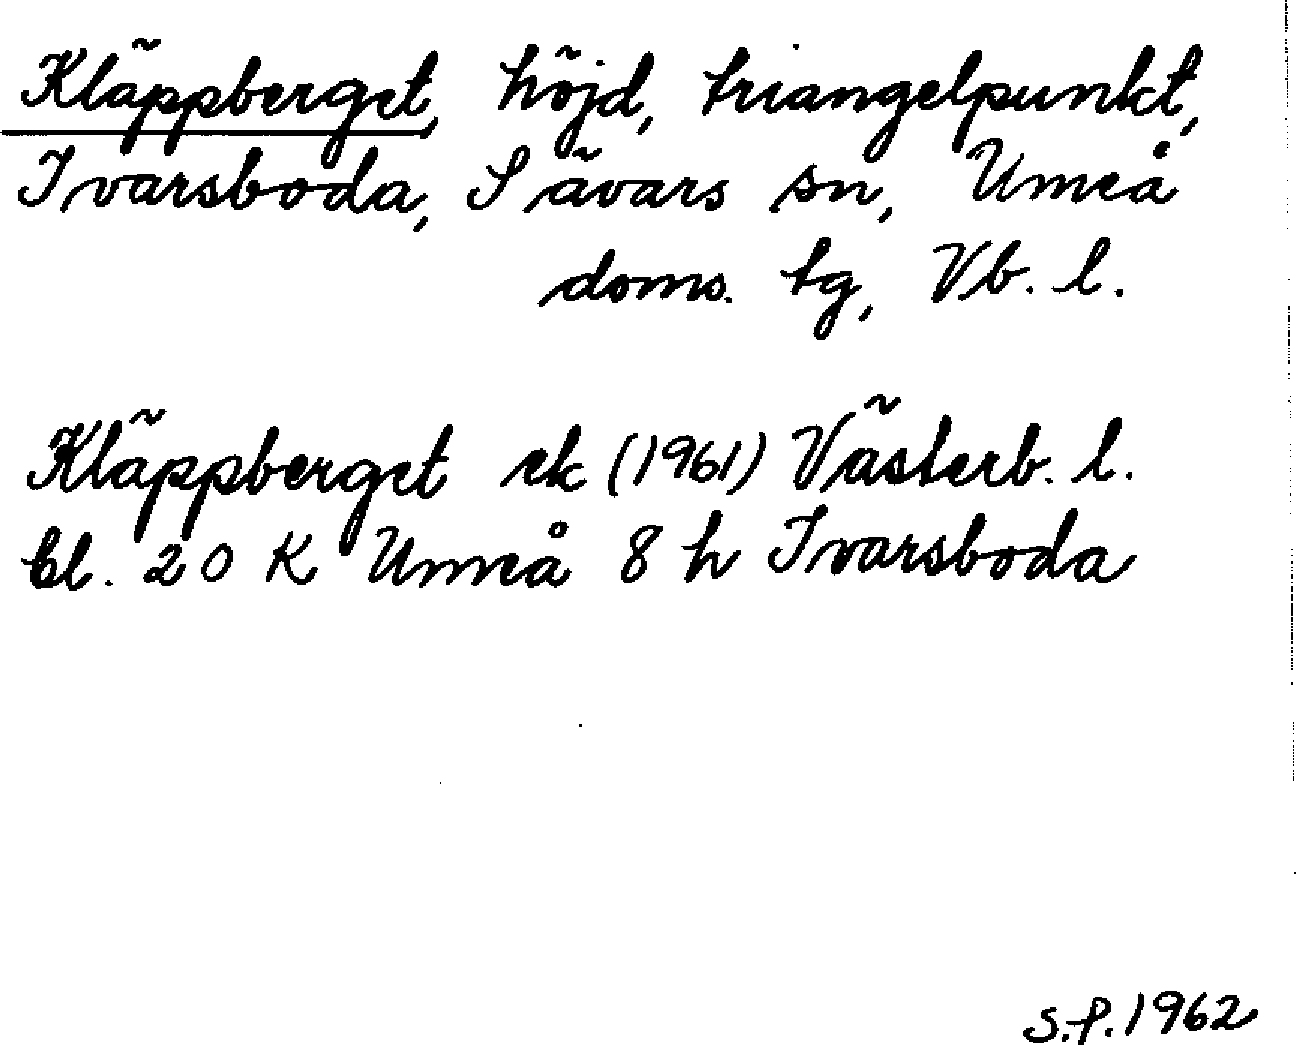 Kläppberget, höjd, triangelpunkt,
Ivarsboda, Sävars sn, Umeå
doms. tg, Vb. l.
Kläppberget ek (1961) Västerb. l.
bl. 20 K Umeå 8 h Ivarsboda
S.P. 1962